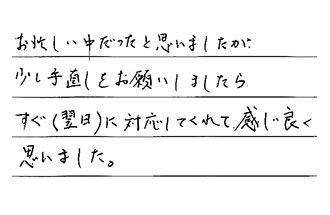 お忙しい中だったと思いましたが、
少し手直しをお願いしましたら
すぐ(翌日)に対応してくれて、感じ良く
思いました。